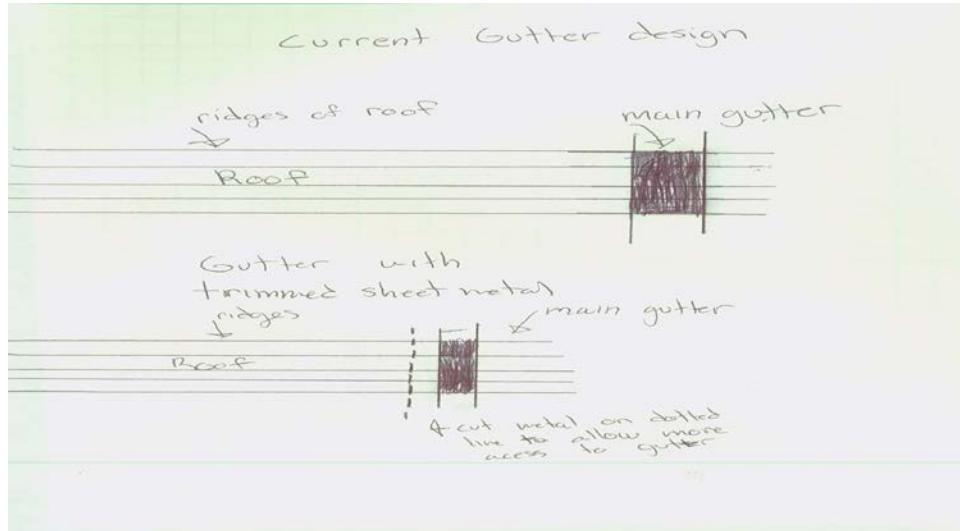 Current Gutter design
ridges of roof
main gutter
Roof
Gutter with
trimmed sheet metal
ridges
main gutter
Roof
cut metal on dotted
line to allow more
acess to gutter